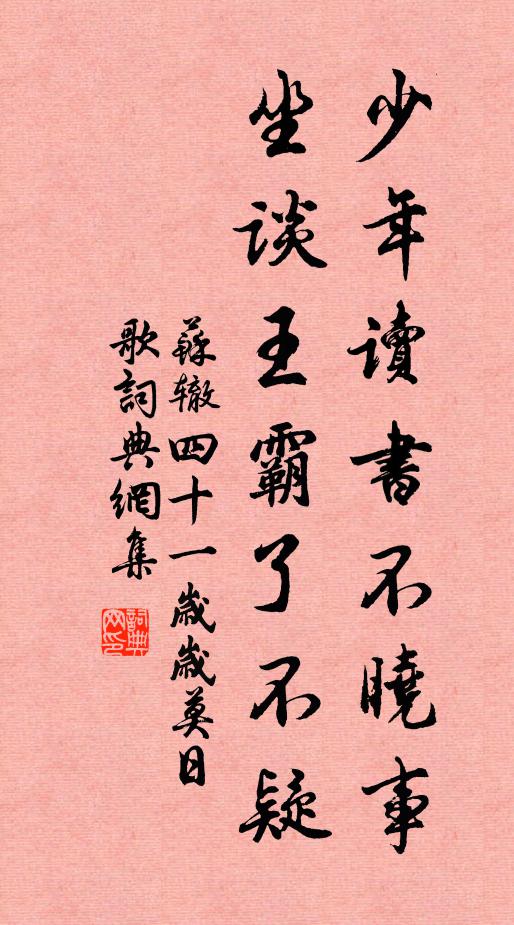 少年讀書不曉事
坐談王霸了不疑
蘇轍四十一歲歲莫日
歌詞典網集
詞典
网印